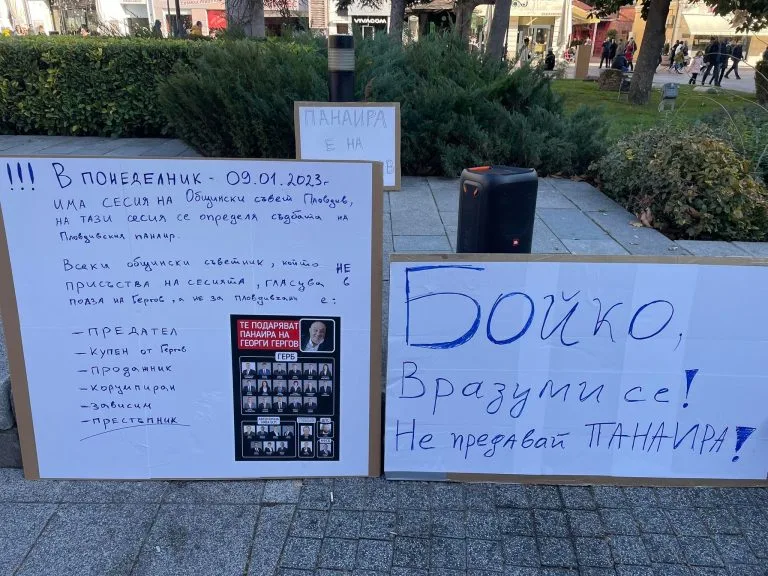 VIVACOM
ПАНАИРА
Е НА
В
!!! В ПОНЕДЕЛНИК - 09.01.2023г
ИМА СЕСИЯ НА Общински съвет Пловдив,
НА ТАЗИ СЕСИЯ СЕ ОПРЕДЕЛЯ СЪДБАТА НА
Пловдивския панаир.
Всеки общински съветник, който НЕ
ПРИСЪСТВА НА СЕСИЯТА, ГЛАСУВА В
ПОЛЗА НА Гергов, а НЕ ЗА Пловдивчани Е:
- ПРЕДАТЕЛ
- КУПЕН ОТ Гергов
- ПРОДАЖНИК
- КОРУМПИРАН
- ЗАВИСИМ
- ПРЕСТЪПНИК
ТЕ ПОДАРЯВАТ
ПАНАИРА НА
ГЕОРГИ ГЕРГОВ
ГЕРБ
JBL
БОЙКО,
Вразуми се!
Не предавай ПАНАИРА!